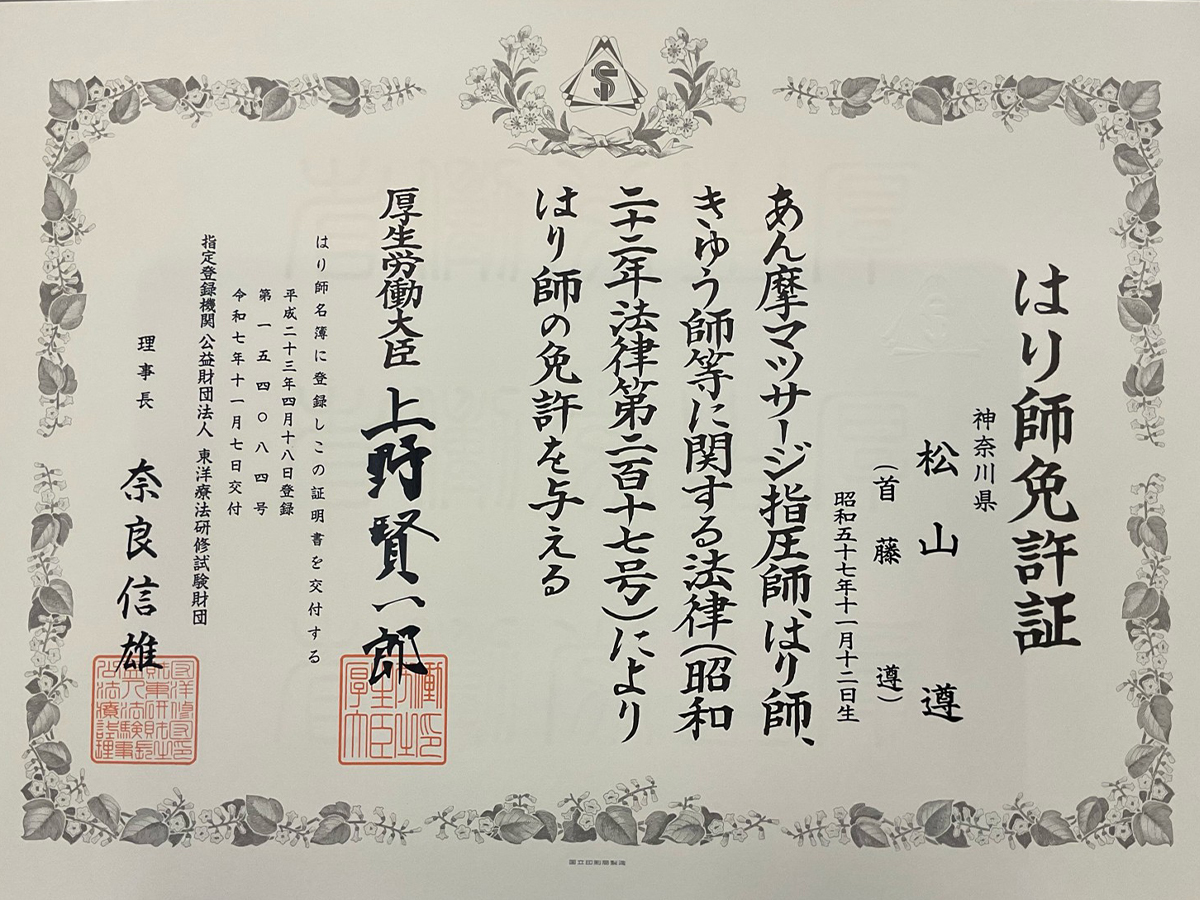 はり師免許証
神奈川県
松山 遵
（首藤 遵）
昭和五十七年十一月十二日生
あん摩マツサージ指圧師、はり師、
きゆう師等に関する法律（昭和
二十二年法律第二百十七号）により
はり師の免許を与える
厚生労働大臣 上野賢一郎
はり師名簿に登録しこの証明書を交付する
平成二十三年四月十八日登録
第一五四〇八四号
令和七年十一月七日交付
指定登録機関 公益財団法人 東洋療法研修試験財団
理事長 奈良信雄
国立印刷局製造